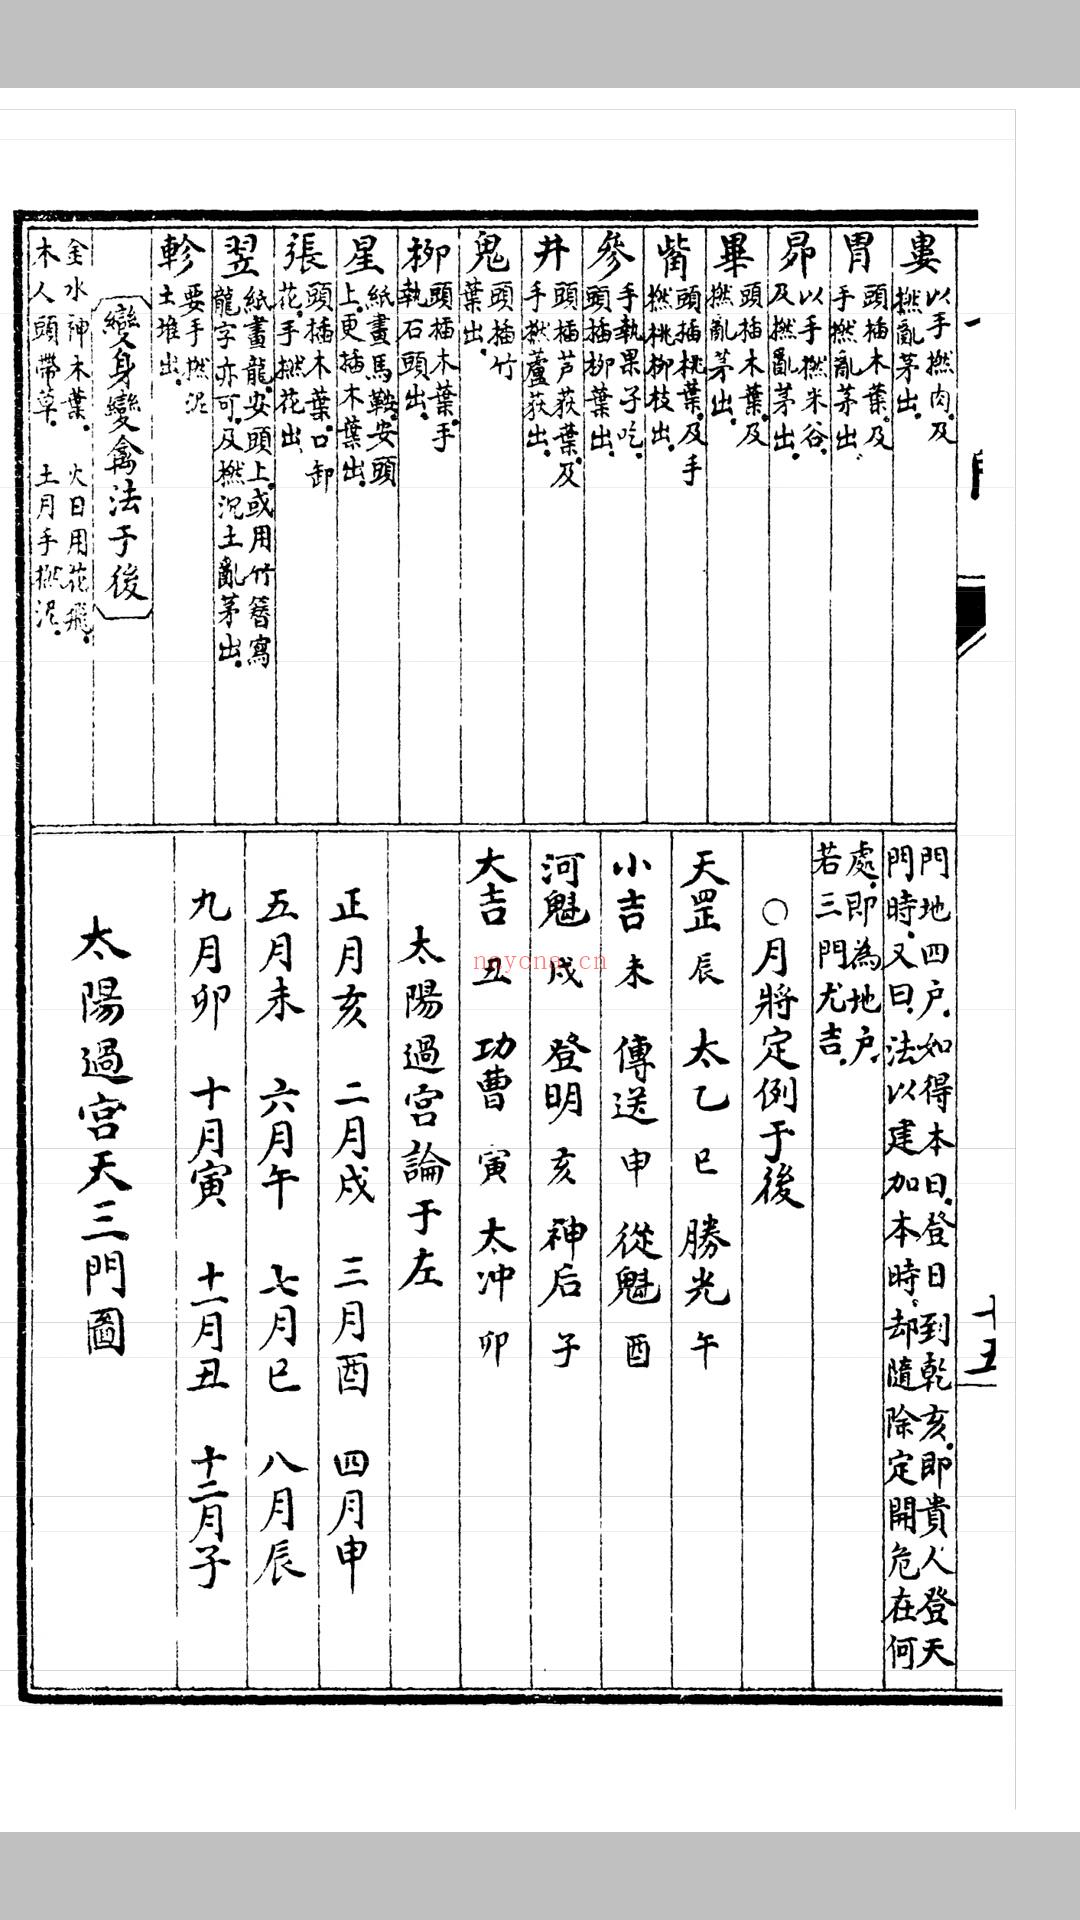 婁 以手撚肉.及
撚亂茅出.
胃 頭插木葉.及
手撚亂茅出.
昴 以手撚米谷.
及撚亂茅出.
畢 頭插木葉.及
撚亂茅出.
觜 頭插桃葉.及手
撚桃柳枝出.
參 手執果子吃.
頭插柳葉出.
井 頭插芦荻葉.及
手撚蘆荻出.
鬼 頭插竹
葉出.
柳 頭插木葉.手
執石頭出.
星 紙畫馬鞍.安頭
上.更插木葉出.
張 頭插木葉.口卸
花.手撚花出.
翌 紙畫龍.安頭上.或用竹簪寫
龍字亦可.及撚泥土亂茅出.
軫 要手撚泥
土堆出.
變身變禽法于後
金水神木葉. 火日用花飛.
木人頭帶草. 土月手撚泥.
門地四户.如得本日.登日到乾亥.即貴人登天
門時.又曰.法以建加本時.却隨除定開危在何
處.即為地户.
若三門尤吉.
○月將定例于後
天罡 辰 太乙 巳 勝光 午
小吉 未 傳送 申 從魁 酉
河魁 戌 登明 亥 神后 子
大吉 丑 功曹 寅 太冲 卯
太陽過宫論于左
正月亥 二月戌 三月酉 四月申
五月未 六月午 七月巳 八月辰
九月卯 十月寅 十一月丑 十二月子
太陽過宫天三門圖
十五
naycna.cn